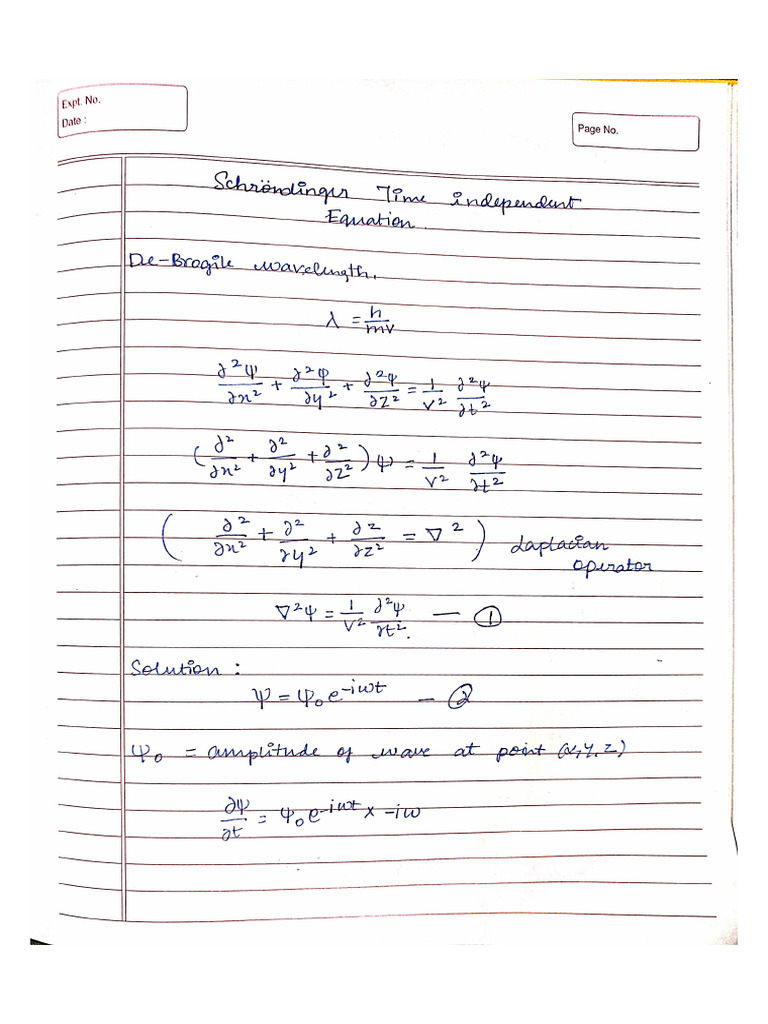 Expt. No.
Date :
Page No.
Schröndinger Time independent
Equation.
De-Brogile wavelength,
λ = h/mv
∂²Ψ/∂x² + ∂²Ψ/∂y² + ∂²Ψ/∂z² = 1/v² ∂²Ψ/∂t²
(∂²/∂x² + ∂²/∂y² + ∂²/∂z²)Ψ = 1/v² ∂²Ψ/∂t²
(∂²/∂x² + ∂²/∂y² + ∂z/∂z² = ∇²) Laplacian
operator
∇²Ψ = 1/v² ∂²Ψ/∂t². — ①
Solution :
Ψ = Ψ₀e^-iωt — ②
Ψ₀ = amplitude of wave at point (x,y,z)
∂Ψ/∂t = Ψ₀e^-iωt x -iω